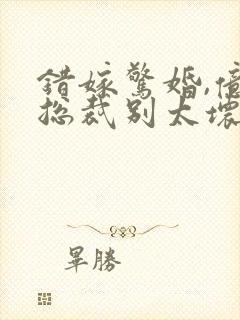 錯嫁驚婚,億
總裁別太壞
畢勝